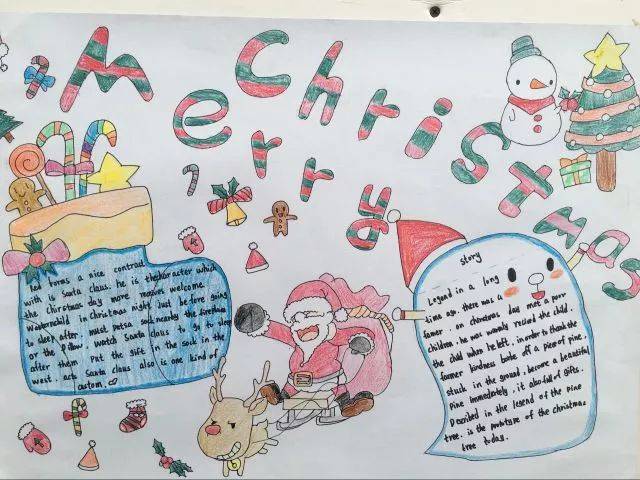 Merry Christmas
Red forms a nice contrast
with is Santa claus. he is the character which
she Christmas day more receive welcome.
Westernchild in christmas night just before going
to sleep after. must put sock nearby the fireplace
or the Pillow watch Santa claus in or sleep
after them. Put the gift in the sock in the
west. act Santa claus also is one kind of
custom.
story
Legend in a long
time ago. there was a
famer. on christmas day met a poor
children, he was warmly recivd the child.
the child when left. in order to thank the
former kindness broke off a pien of pine.
stuck in the ground, become a beautiful
pine immediately, it also full of gifts.
Decribed in the legend of the pine
tree. is the prototype of the christmas
tree today.